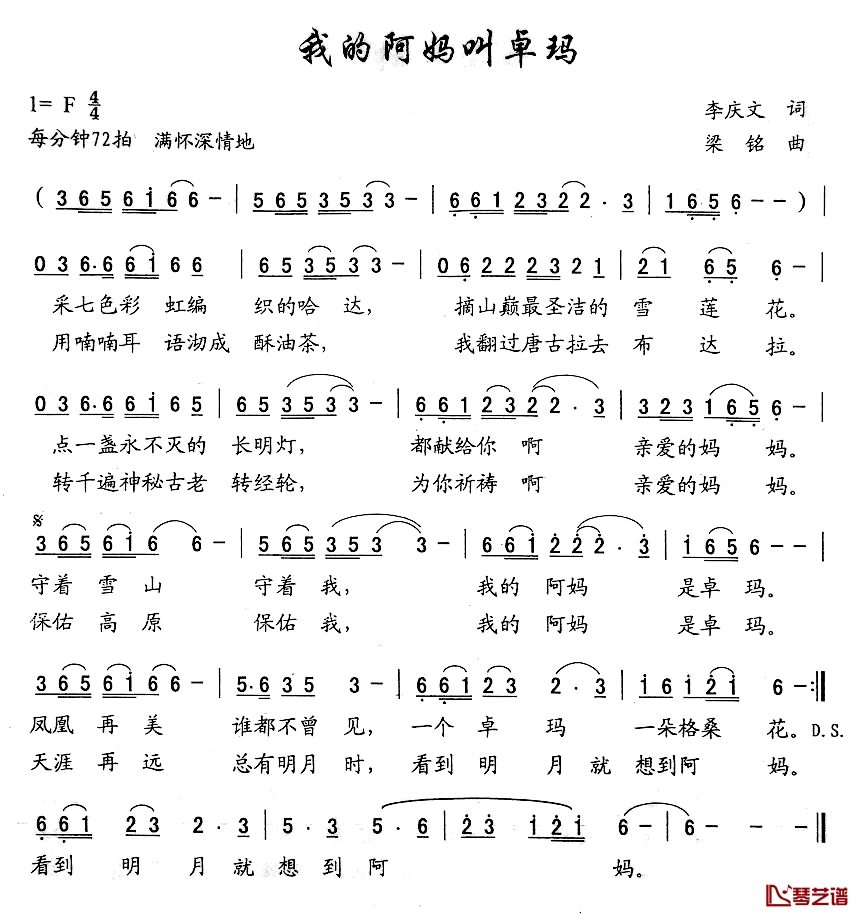 我的阿妈叫卓玛
1= F 4/4
李庆文 词
每分钟72拍 满怀深情地
梁 铭 曲
( 3 6 5 6 i 6 6 - | 5 6 5 3 5 3 3 - | 6 6 1 2 3 2 2 · 3 | 1 6 5 6 - - ) |
0 3 6 · 6 6 i 6 6 | 6 5 3 5 3 3 - | 0 6 2 2 2 2 3 2 1 | 2 1 6 5 6 - |
采七色彩 虹编 织的哈 达, 摘山巅最圣洁的 雪 莲 花。
用喃喃耳 语沏成 酥油茶, 我翻过唐古拉去 布 达 拉。
0 3 6 · 6 6 i 6 5 | 6 5 3 5 3 3 - | 6 6 1 2 3 2 2 · 3 | 3 2 3 1 6 5 6 - |
点一盏永不灭的 长明灯, 都献给你 啊 亲爱的妈 妈。
转千遍神秘古老 转经轮, 为你祈祷 啊 亲爱的妈 妈。
3 6 5 6 i 6 6 - | 5 6 5 3 5 3 3 - | 6 6 i 2 2 2 · 3 | i 6 5 6 - |
守着 雪 山 守着 我, 我的 阿妈 是卓 玛。
保佑 高 原 保佑 我, 我的 阿妈 是卓 玛。
3 6 5 6 i 6 6 - | 5 · 6 3 5 3 - | 6 6 1 2 3 2 · 3 | i 6 i 2 i 6 - :‖
凤凰 再 美 谁都不曾 见, 一个 卓 玛 一朵格桑 花。D.S.
天涯 再 远 总有明月 时, 看到 明 月 就 想到阿 妈。
6 6 1 2 3 2 · 3 | 5 · 3 5 · 6 | 2 3 i 2 i 6 - | 6 - - - ‖
看到 明 月 就 想 到 阿 妈。
琴艺谱